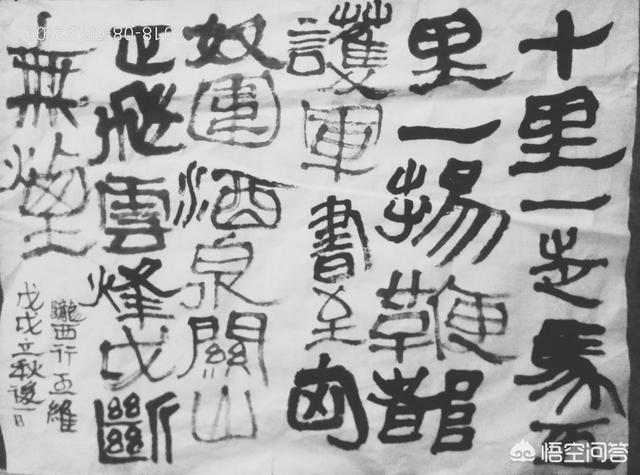 十里一走馬五
里一揚鞭都
護軍書至匈
奴圍酒泉關山
正飛雲烽戍斷
無煙
隴西行 王維
戊戌立秋後一日
悟空问答